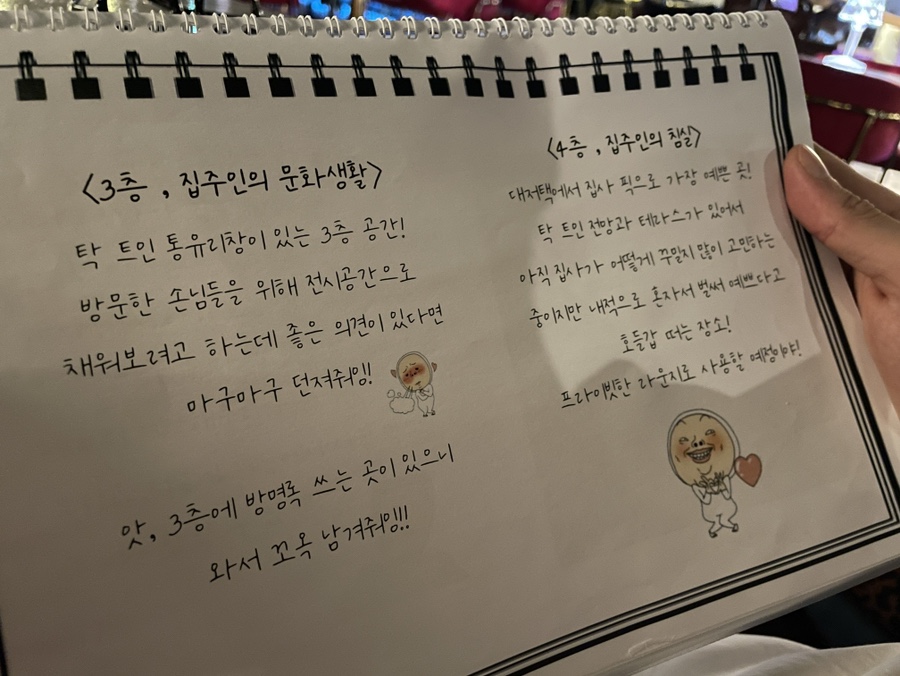 <3층 , 집주인의 문화생활>
탁 트인 통유리창이 있는 3층 공간!
방문한 손님들을 위해 전시공간으로
채워보려고 하는데 좋은 의견이 있다면
마구마구 던져줘잉!!
앗, 3층에 방명록 쓰는 곳이 있으니
와서 꼬옥 남겨줘잉!!!
<4층 , 집주인의 침실>
대저택에서 집사 픽으로 가장 예쁜 곳!
탁 트인 전망과 테라스가 있어서
아직 집사가 어떻게 꾸밀지 많이 고민하는
중이지만 내적으로 혼자서 벌써 예쁘다고
호들갑 떠는 장소!
프라이빗한 라운지로 사용할 예정이야!